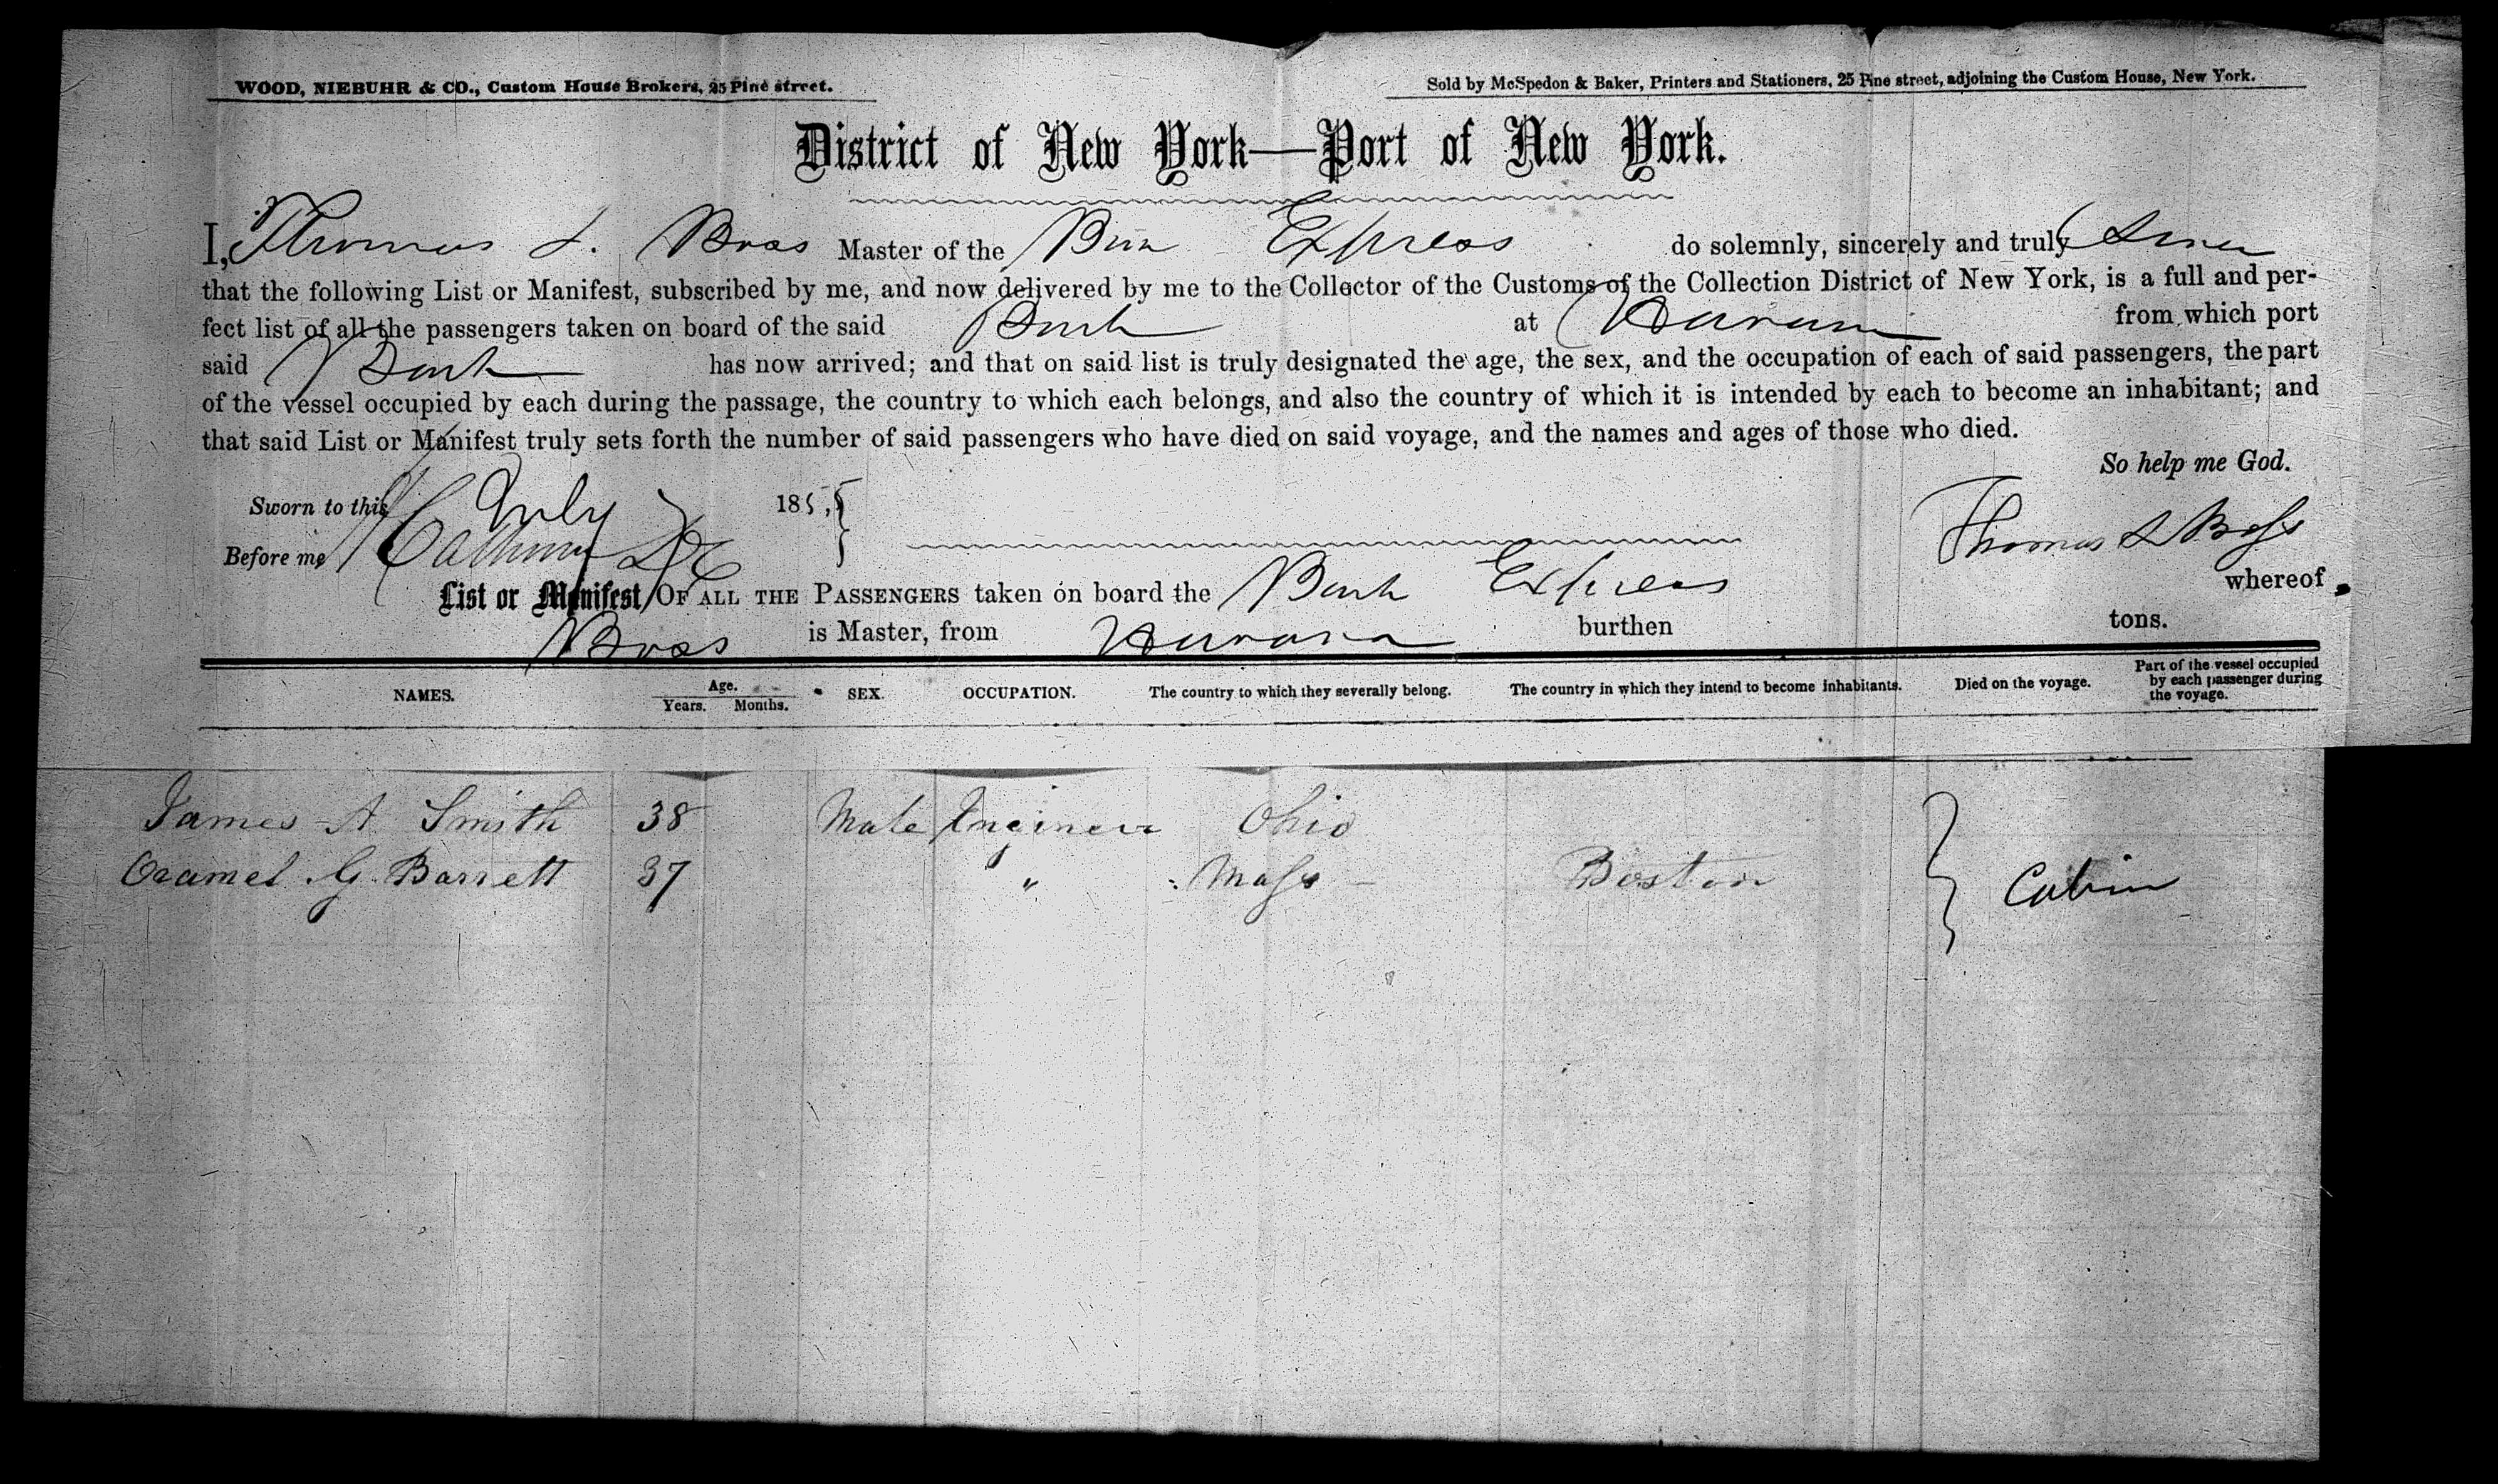 WOOD, NIEBUHR & CO., Custom House Brokers, 25 Pine street.
Sold by McSpedon & Baker, Printers and Stationers, 25 Pine street, adjoining the Custom House, New York.
District of New York—Port of New York.
I, Thomas S. Boss Master of the Bark Express do solemnly, sincerely and truly Swear
that the following List or Manifest, subscribed by me, and now delivered by me to the Collector of the Customs of the Collection District of New York, is a full and per-
fect list of all the passengers taken on board of the said Bark at Havana from which port
said Bark has now arrived; and that on said list is truly designated the age, the sex, and the occupation of each of said passengers, the part
of the vessel occupied by each during the passage, the country to which each belongs, and also the country of which it is intended by each to become an inhabitant; and
that said List or Manifest truly sets forth the number of said passengers who have died on said voyage, and the names and ages of those who died.
So help me God.
Sworn to this July 185
Before me Calhoun Thomas S Boss
List or Manifest OF ALL THE PASSENGERS taken on board the Bark Express whereof
Boss is Master, from Havana burthen tons.
NAMES. Age. Years. Months. SEX. OCCUPATION. The country to which they severally belong. The country in which they intend to become inhabitants. Died on the voyage. Part of the vessel occupied by each passenger during the voyage.
James A Smith 38 Male Engineer Ohio
Oramel G. Barrett 37 " Mass Boston
Cabin